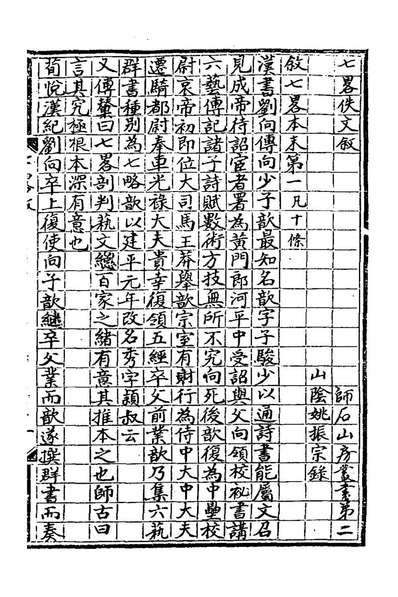 七畧佚文叙
師石山房叢書第二
山陰姚振宗錄
敘七畧本末第一凡十條
漢書劉向傳向少子歆最知名歆字子駿少以通詩書能屬文召
見成帝待詔宦者署為黃門郎河平中受詔與父向領校祕書講
六藝傳記諸子詩賦數術方技無所不究向死後歆復為中壘校
尉哀帝初即位大司馬王莽舉歆宗室有財行為侍中大中大夫
遷騎都尉奉車光祿大夫貴幸復領五經卒父前業歆乃集六蓺
群書種別為七略歆以建平元年改名秀字穎叔云
又傳贊曰七畧剖判蓺文總百家之緒有意其推本之也師古曰
言其究極根本深有意也
荀悅漢紀劉向卒上復使向子歆繼卒父業而歆遂撰群書而奏